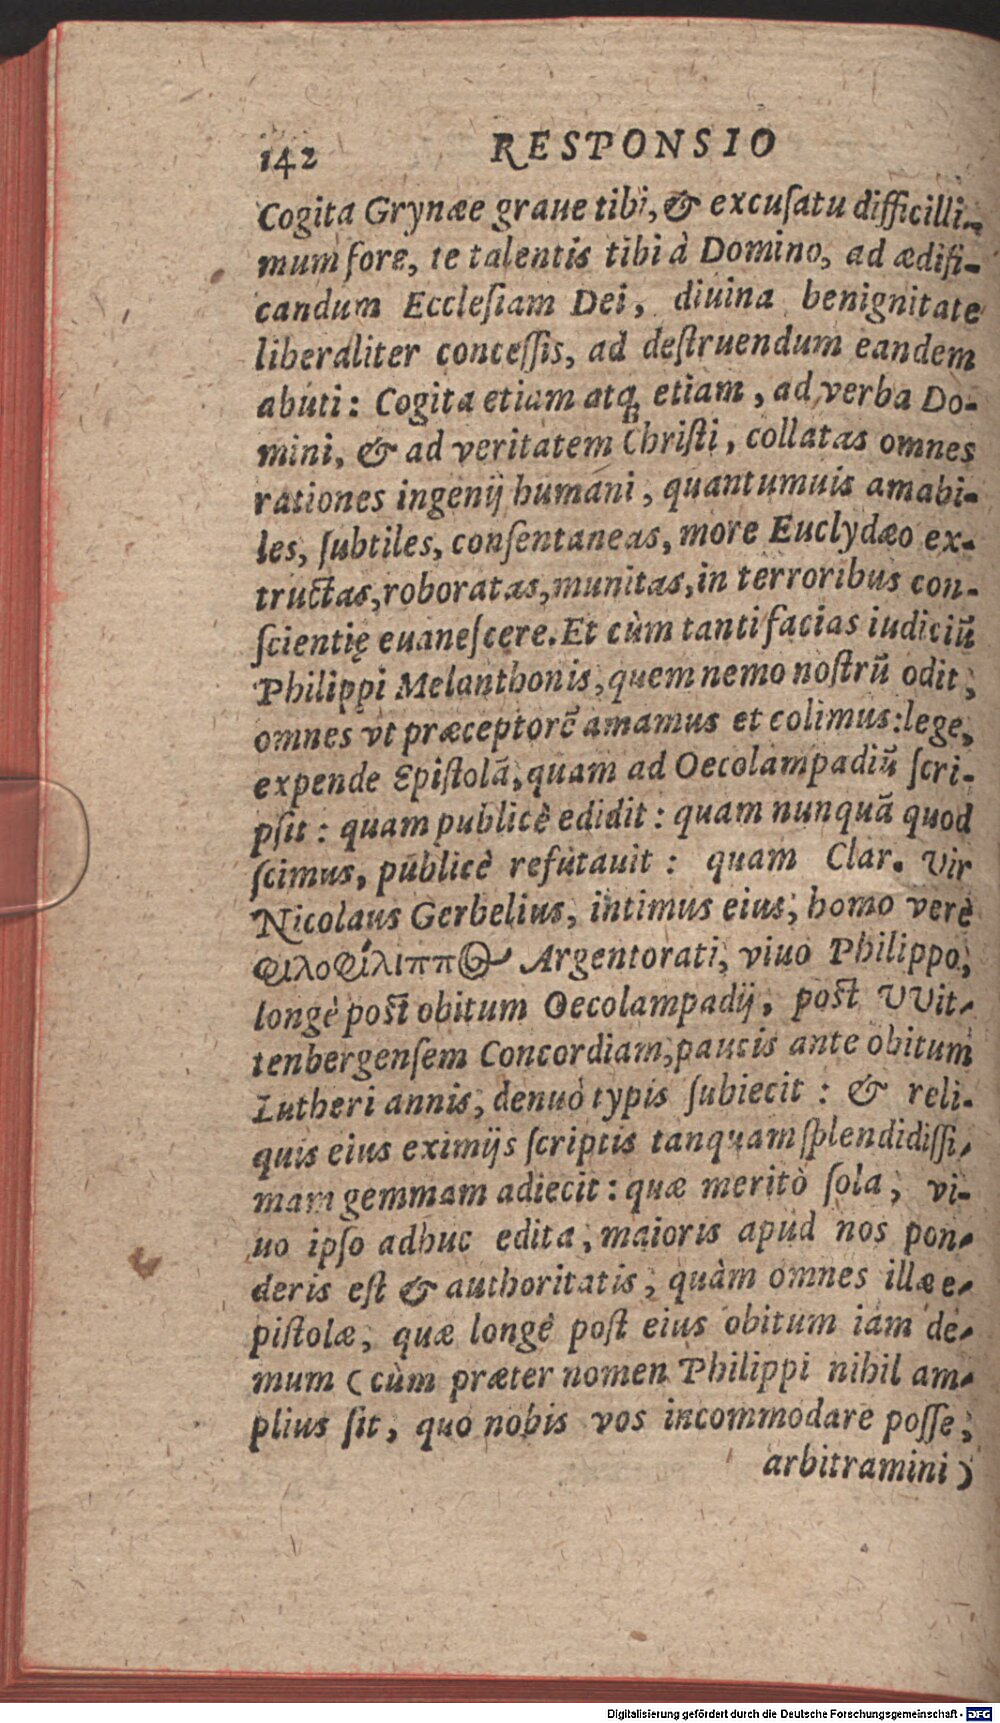 142 RESPONSIO
Cogita Grynæe graue tibi, & excuſatu difficilli-
mum fore, te talentis tibi à Domino, ad ædifi-
candum Eccleſiam Dei, diuina benignitate
liberaliter conceſſis, ad deſtruendum eandem
abuti: Cogita etiam atq; etiam, ad verba Do-
mini, & ad veritatem Chriſti, collatas omnes
rationes ingenij humani, quantumuis amabi-
les, ſubtiles, conſentaneas, more Euclydæo ex-
tructas, roboratas, munitas, in terroribus con-
ſcientię euaneſcere. Et cùm tanti facias iudiciū
Philippi Melanthonis, quem nemo noſtrū odit,
omnes vt præceptorē amamus et colimus: lege,
expende Epiſtolā, quam ad Oecolampadiū ſcri-
pſit: quam publicè edidit: quam nunquā quod
ſcimus, publicè refutauit: quam Clar. Vir
Nicolaus Gerbelius, intimus eius, homo verè
φιλοφίλιππος Argentorati, viuo Philippo,
longè poſt obitum Oecolampadij, poſt VVit-
tenbergenſem Concordiam, paucis ante obitum
Lutheri annis, denuò typis ſubiecit: & reli-
quis eius eximijs ſcriptis tanquam ſplendidiſſi-
mam gemmam adiecit: quæ meritò ſola, vi-
uo ipſo adhuc edita, maioris apud nos pon-
deris eſt & authoritatis, quàm omnes illæ e-
piſtolæ, quæ longè poſt eius obitum iam de-
mum (cùm præter nomen Philippi nihil am-
plius ſit, quo nobis vos incommodare poſſe,
arbitramini)
Digitalisierung gefördert durch die Deutsche Forschungsgemeinschaft - DFG